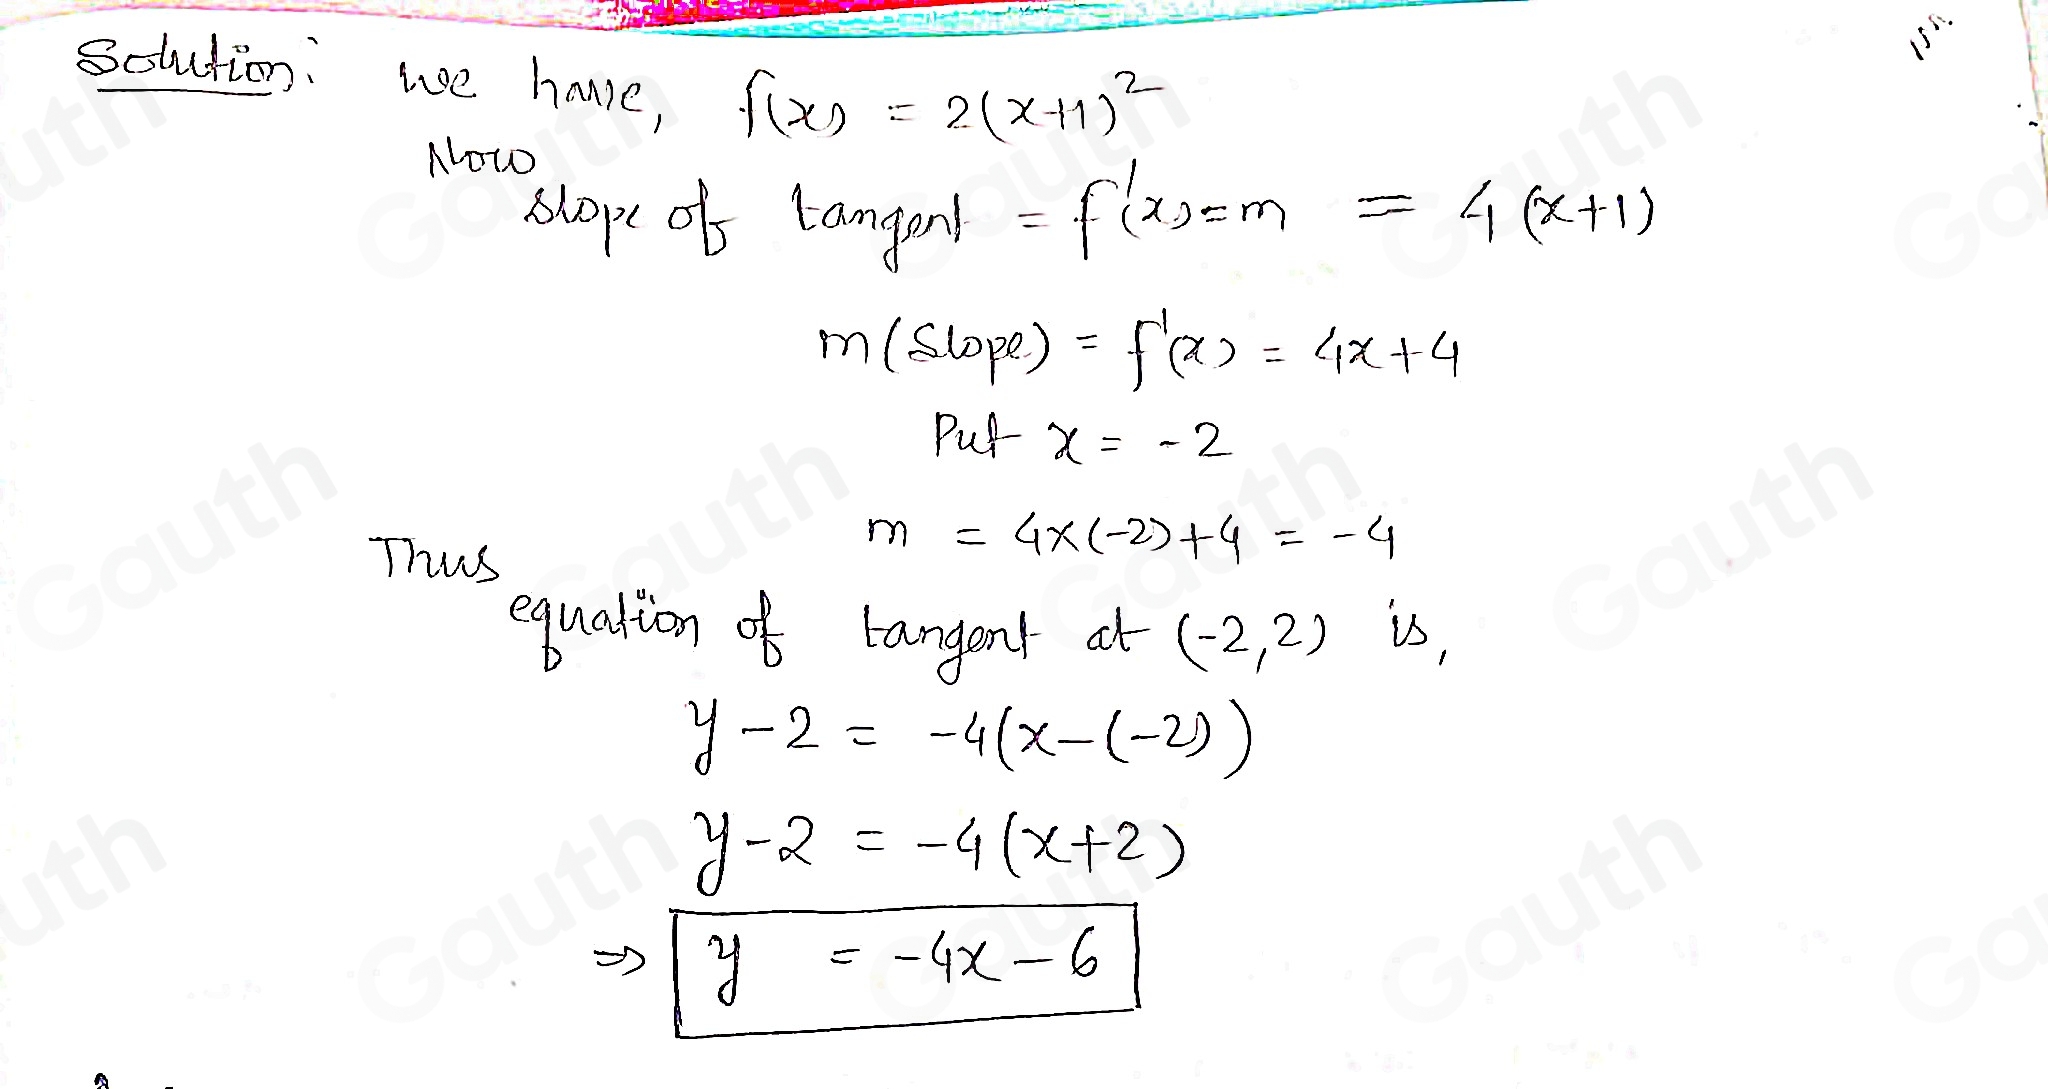 Solution: we have, f(x) = 2(x+1)²
Now
slope of tangent = f'(x) = m = 4(x+1)
m(Slope) = f'(x) = 4x+4
Put x = -2
m = 4×(-2)+4 = -4
Thus
equation of tangent at (-2,2) is,
y-2 = -4(x-(-2))
y-2 = -4(x+2)
⇒ y = -4x-6
Gauth